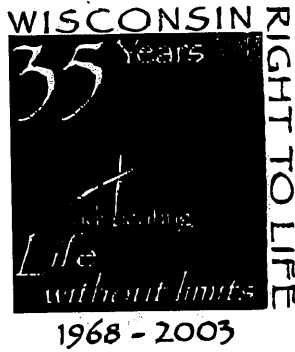 WISCONSIN
RIGHT TO LIFE
35 Years
Life
without limits
1968 - 2003